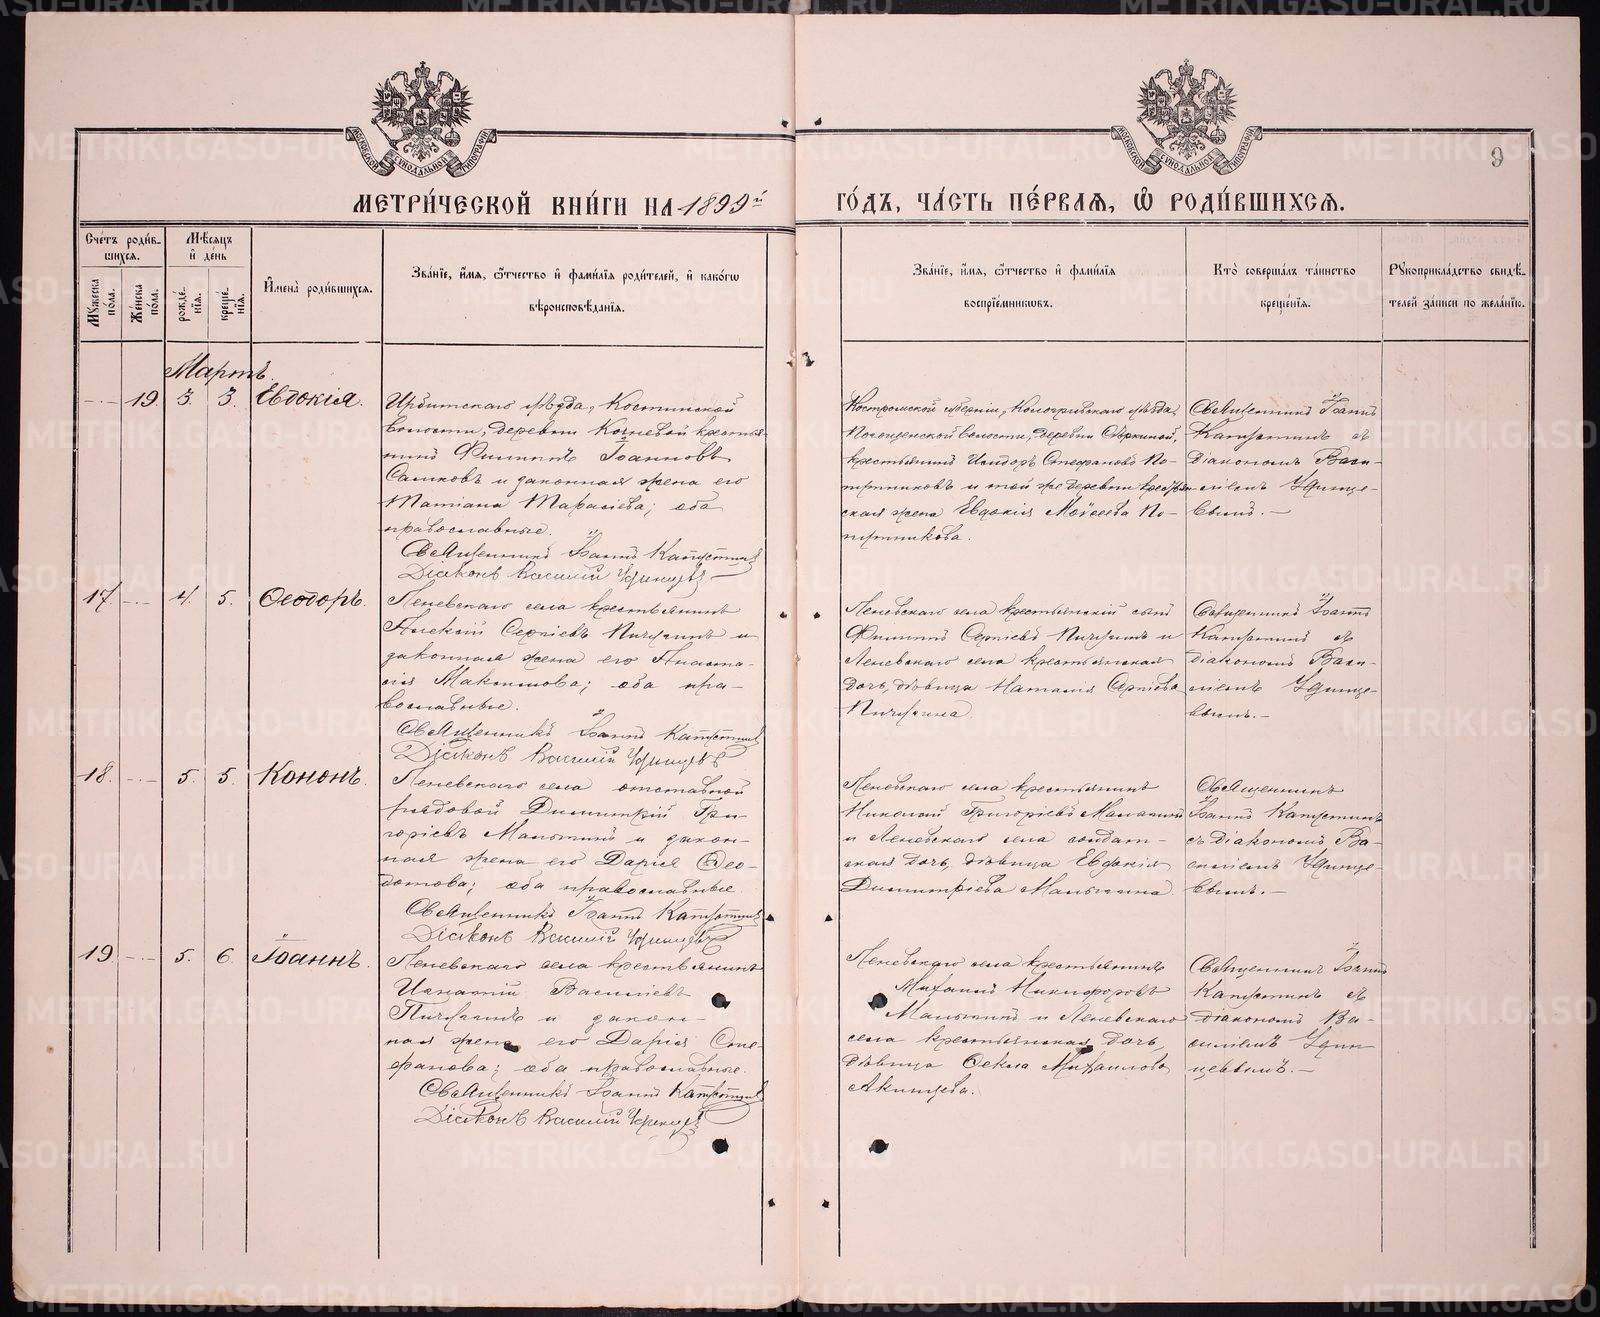 МОСКОВСКОЙ СУНОДАЛЬНОЙ ТИПОГРАФІИ
МОСКОВСКОЙ СУНОДАЛЬНОЙ ТИПОГРАФІИ
9
МЕТРИ́ЧЕСКОЙ КНИ́ГИ НА 1899й
ГО́ДЪ, ЧА́СТЬ ПЕ́РВАЯ, Ѡ РОДИ́ВШИХСЯ.
Сче́тъ роди́в-
шихся.
Мѣ́сяцъ
и҆ де́нь
Мꙋжеска
по́ла.
Женска
по́ла.
рожде́-
нїѧ.
креще́-
нїѧ.
И҆мена̀ роди́вшихся.
Зва́нїе, и҆́мѧ, ѻ҆́тчество и҆ фами́лїѧ роди́телей, и҆ како́гѡ
вѣроисповѣ́данїѧ.
Зва́нїе, и҆́мѧ, ѻ҆́тчество и҆ фами́лїѧ
воспрїе́мниковъ.
Кто̀ соверша́лъ та́инство
креще́нїѧ.
Рꙋкоприкла́дство свидѣ́-
телей за́писи по жела́нїю.
Мартъ.
19. 3. 3. Евдокія.
Ирбитскаго уѣзда, Костинской
волости, деревни Кочневой крестья-
нинъ Филиппъ Іоанновъ
Саликовъ и законная жена его
Татіана Тарасіева; оба
православные.
Священникъ Іоаннъ Капустинъ
Діаконъ Василій Удинцевъ
Костромской губерніи, Кологривскаго уѣзда,
волости, деревни
крестьянинъ Исидоръ Стефановъ По-
ртниковъ и той же деревни крестьян-
ская жена Евдокія Мойсеева По-
ртникова.
Священникъ Іоаннъ
Капустинъ съ
діакономъ Васи-
ліемъ Удинце-
вымъ.—
17. 4. 5. Ѳеодоръ.
Леневскаго села крестьянинъ
Алексій Сергіевъ Пичугинъ и
законная жена его Анаста-
сія Максимова; оба пра-
вославные.
Священникъ Іоаннъ Капустинъ
Діаконъ Василій Удинцевъ
Леневскаго села крестьянскій сынъ
Филиппъ Сергіевъ Пичугинъ и
Леневскаго села крестьянская
дочь, дѣвица Наталія Сергіева
Пичугина.
Священникъ Іоаннъ
Капустинъ съ
діакономъ Васи-
ліемъ Удинце-
вымъ.—
18. 5. 5. Кононъ.
Леневскаго села отставной
рядовой Димитрій Гри-
горіевъ Малыгинъ и закон-
ная жена его Дарія Ѳео-
дотова; оба православные.
Священникъ Іоаннъ Капустинъ
Діаконъ Василій Удинцевъ
Леневскаго села крестьянинъ
Николай Григоріевъ Малыгинъ
и Леневскаго села солдат-
ская дочь, дѣвица Евдокія
Димитріева Малыгина.
Священникъ
Іоаннъ Капустинъ
съ діакономъ Ва-
силіемъ Удинце-
вымъ.—
19. 5. 6. Іоаннъ.
Леневскаго села крестьянинъ
Игнатій Васильевъ
Пичугинъ и закон-
ная жена его Дарія Сте-
фанова; оба православные.
Священникъ Іоаннъ Капустинъ
Діаконъ Василій Удинцевъ
Леневскаго села крестьянинъ
Михаилъ Никифоровъ
Малыгинъ и Леневскаго
села крестьянская дочь,
дѣвица Ѳекла Михаилова
Акинцева.
Священникъ Іоаннъ
Капустинъ съ
діакономъ Ва-
силіемъ Удин-
цевымъ.—
METRIKI.GASO-URAL.RU